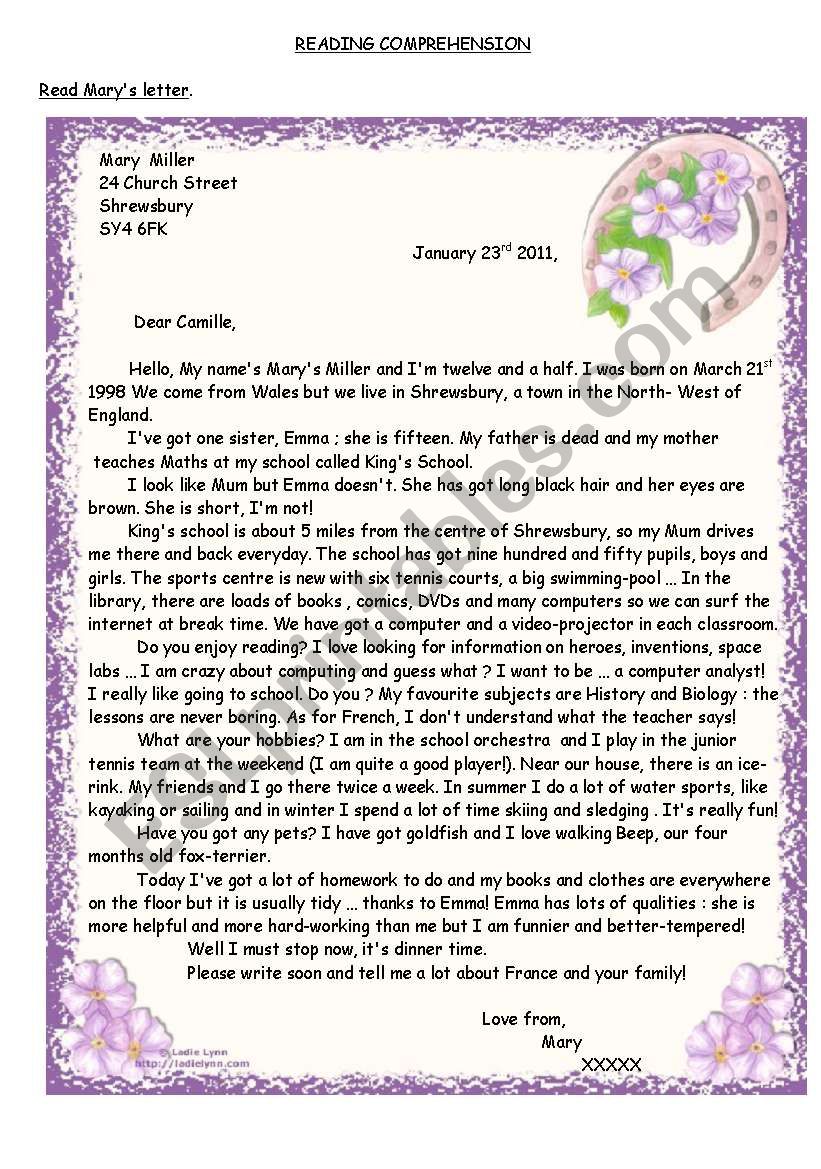 READING COMPREHENSION
Read Mary's letter.
Mary Miller
24 Church Street
Shrewsbury
SY4 6FK
January 23rd 2011,
Dear Camille,
Hello, My name's Mary's Miller and I'm twelve and a half. I was born on March 21st
1998 We come from Wales but we live in Shrewsbury, a town in the North- West of
England.
I've got one sister, Emma ; she is fifteen. My father is dead and my mother
teaches Maths at my school called King's School.
I look like Mum but Emma doesn't. She has got long black hair and her eyes are
brown. She is short, I'm not!
King's school is about 5 miles from the centre of Shrewsbury, so my Mum drives
me there and back everyday. The school has got nine hundred and fifty pupils, boys and
girls. The sports centre is new with six tennis courts, a big swimming-pool ... In the
library, there are loads of books , comics, DVDs and many computers so we can surf the
internet at break time. We have got a computer and a video-projector in each classroom.
Do you enjoy reading? I love looking for information on heroes, inventions, space
labs ... I am crazy about computing and guess what ? I want to be ... a computer analyst!
I really like going to school. Do you ? My favourite subjects are History and Biology : the
lessons are never boring. As for French, I don't understand what the teacher says!
What are your hobbies? I am in the school orchestra and I play in the junior
tennis team at the weekend (I am quite a good player!). Near our house, there is an ice-
rink. My friends and I go there twice a week. In summer I do a lot of water sports, like
kayaking or sailing and in winter I spend a lot of time skiing and sledging . It's really fun!
Have you got any pets? I have got goldfish and I love walking Beep, our four
months old fox-terrier.
Today I've got a lot of homework to do and my books and clothes are everywhere
on the floor but it is usually tidy ... thanks to Emma! Emma has lots of qualities : she is
more helpful and more hard-working than me but I am funnier and better-tempered!
Well I must stop now, it's dinner time.
Please write soon and tell me a lot about France and your family!
Love from,
Mary
XXXXX
© Ladie Lynn
http://ladielynn.com
ESLprintables.com